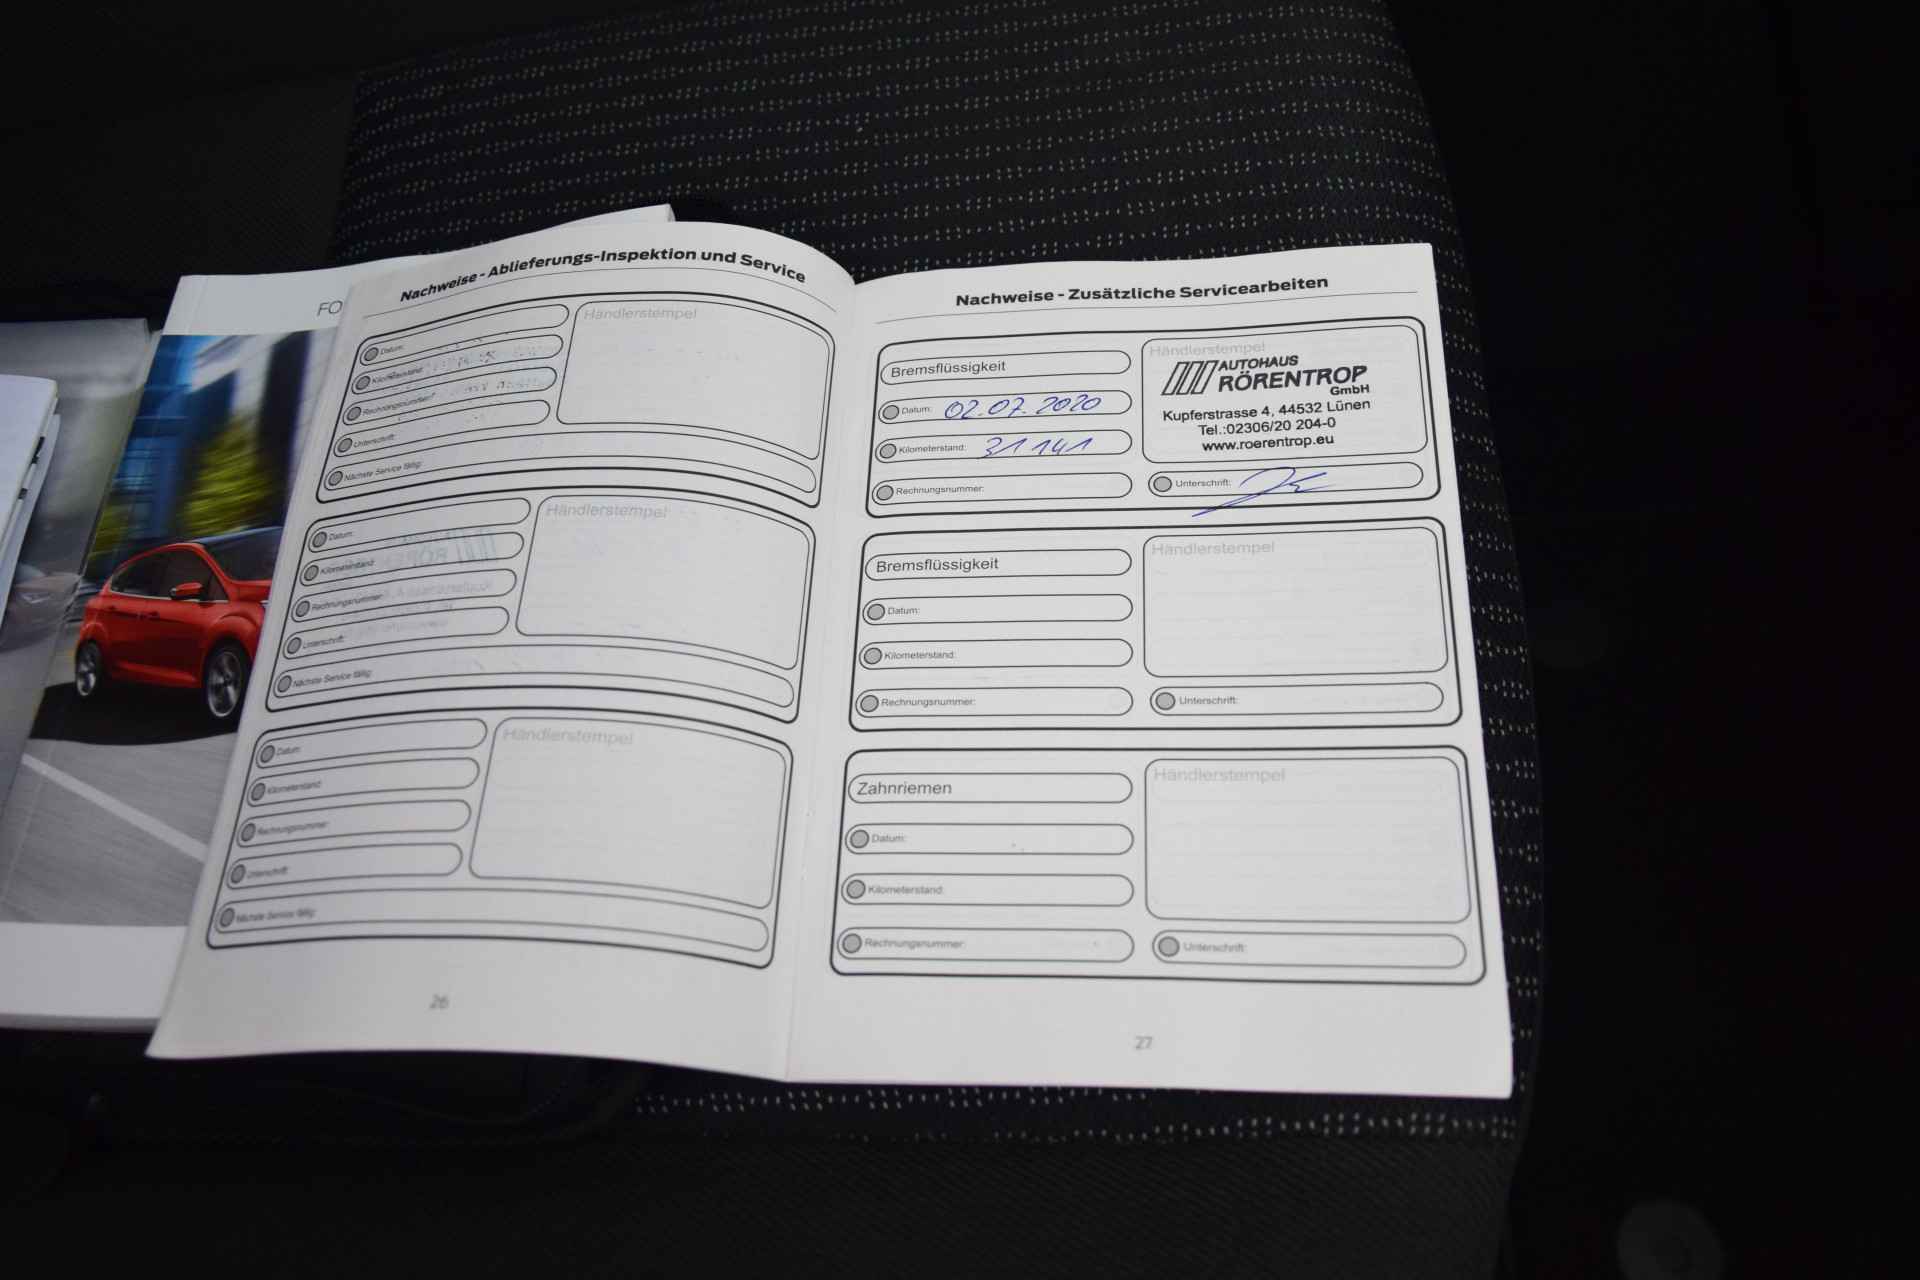 FO
Nachweise - Ablieferungs-Inspektion und Service
Datum:
Kilometerstand:
Rechnungsnummer:
Unterschrift:
Nächste Service fällig:
Händlerstempel
Datum:
Kilometerstand:
Rechnungsnummer:
Unterschrift:
Nächste Service fällig:
Händlerstempel
Datum:
Kilometerstand:
Rechnungsnummer:
Unterschrift:
Nächste Service fällig:
Händlerstempel
26
Nachweise - Zusätzliche Servicearbeiten
Bremsflüssigkeit
Datum: 02.07.2020
Kilometerstand: 31 141
Rechnungsnummer:
Händlerstempel
AUTOHAUS
RÖRENTROP
GmbH
Kupferstrasse 4, 44532 Lünen
Tel.:02306/20 204-0
www.roerentrop.eu
Unterschrift:
Bremsflüssigkeit
Datum:
Kilometerstand:
Rechnungsnummer:
Händlerstempel
Unterschrift:
Zahnriemen
Datum:
Kilometerstand:
Rechnungsnummer:
Händlerstempel
Unterschrift:
27